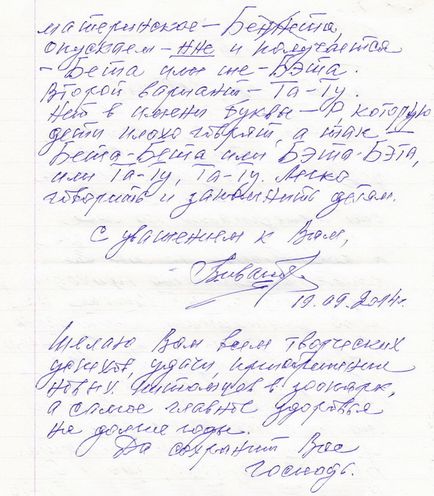 материнское – БеннЕта,
опускаем – нне и получается
– Бета или же – БЭта.
Второй вариант – Та-Ту.
Нет в имени буквы – Р, которую
дети плохо говорят, а так –
Бета-Бета или БЭта-БЭта,
или Та-Ту, Та-Ту. Легко
говорить и запомнить детям.
С уважением к Вам,
19.09.2014г.
Желаю Вам всем творческих
успехов, удачи, приобретении
новых питомцев в зоопарк,
а самое главное здоровья
на долгие годы.
Да сохранит Вас
Господь.